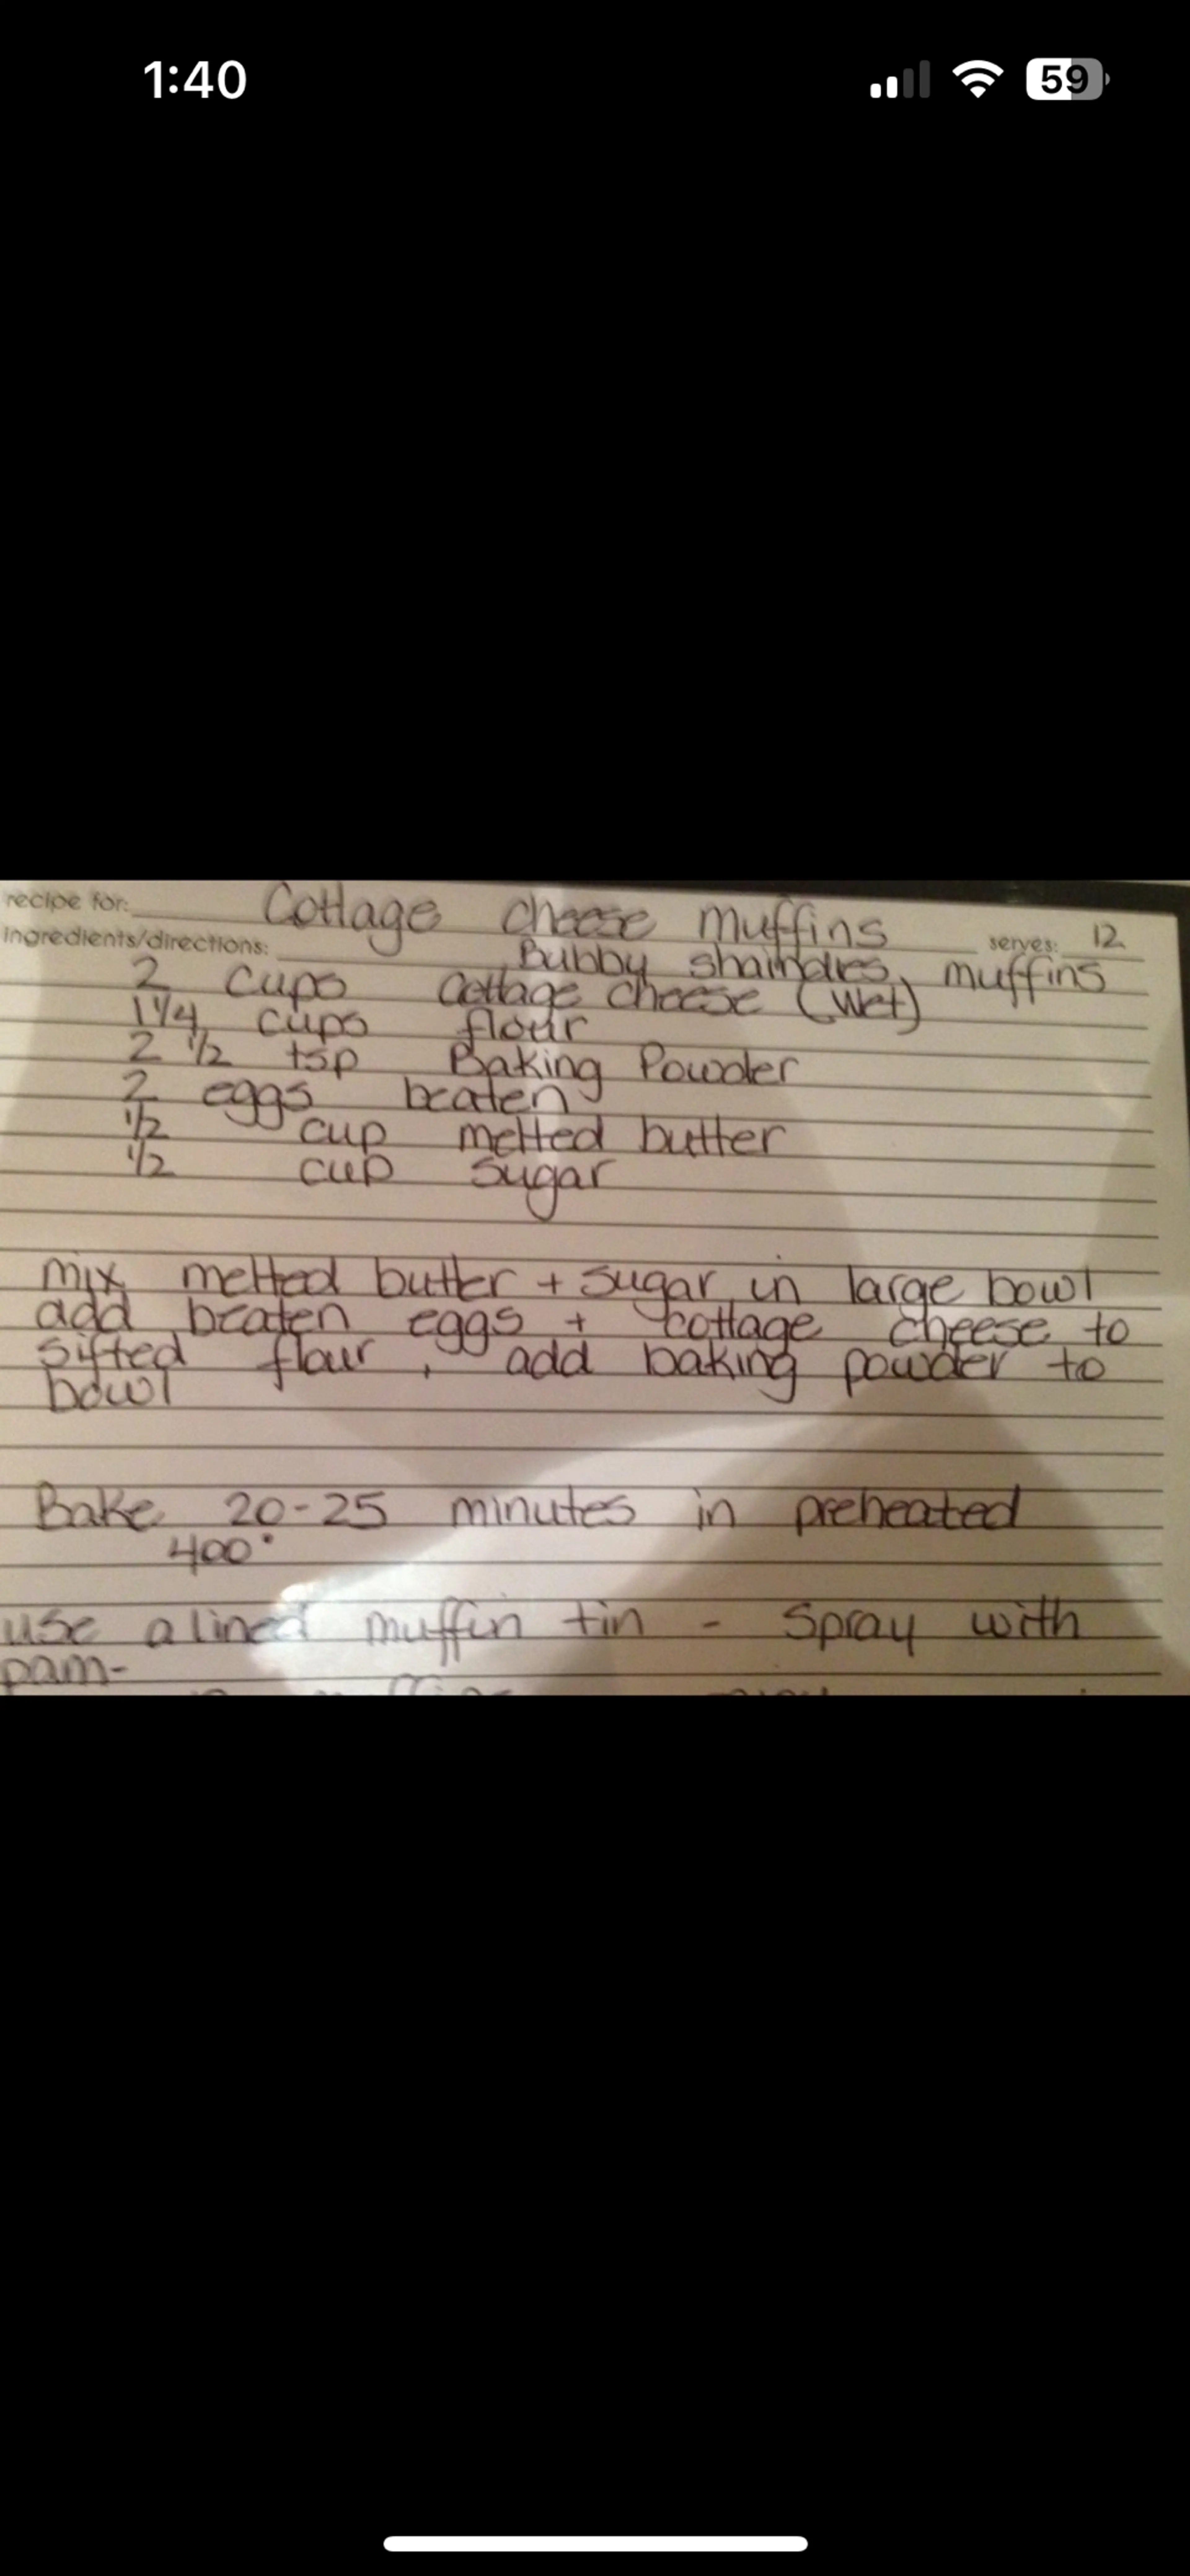 1:40
59
recipe for: Cottage cheese muffins
serves: 12
ingredients/directions: Bubby shaindles muffins
2 cups cottage cheese (wet)
1 1/4 cups flour
2 1/2 tsp Baking Powder
2 eggs beaten
1/2 cup melted butter
1/2 cup sugar
mix melted butter + sugar in large bowl
add beaten eggs + cottage cheese to
sifted flour, add baking powder to
bowl
Bake 20-25 minutes in preheated
400°
use a lined muffin tin - Spray with
pam-